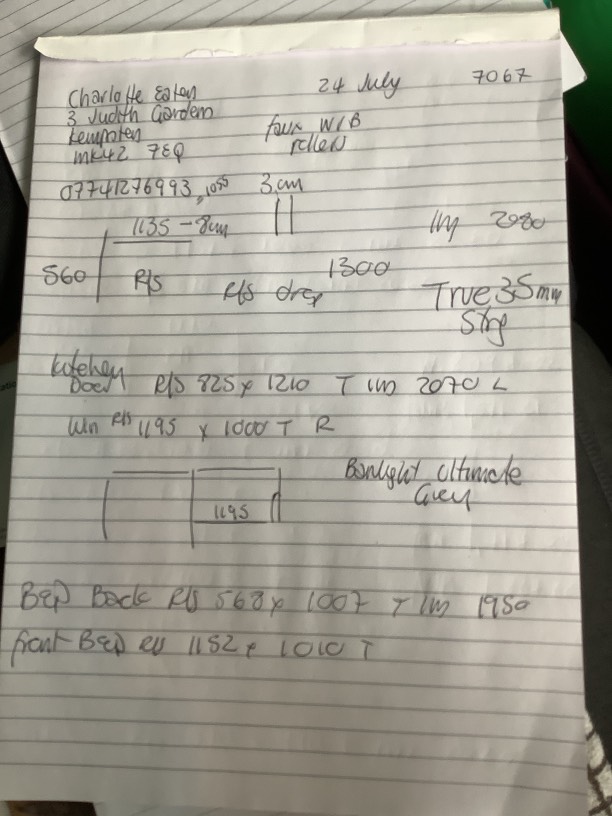 24 July 7067
Charlotte Eaten
3 Judith Gardens
Kempston
MK42 7EQ
faux W/B
roller
07741276993
1055
3cm
1135 - 8cm
1m 2080
560
R/S
R/S drop 1300
True 35mm
Strg
Kitchen
Door R/S 825 x 1210 T 1m 2070 L
Win R/S 1195 x 1000 T R
Banlight Ultimate
Grey
1195
Bed Back R/S 568 x 1007 T 1m 1950
front Bed R/S 1152 x 1010 T